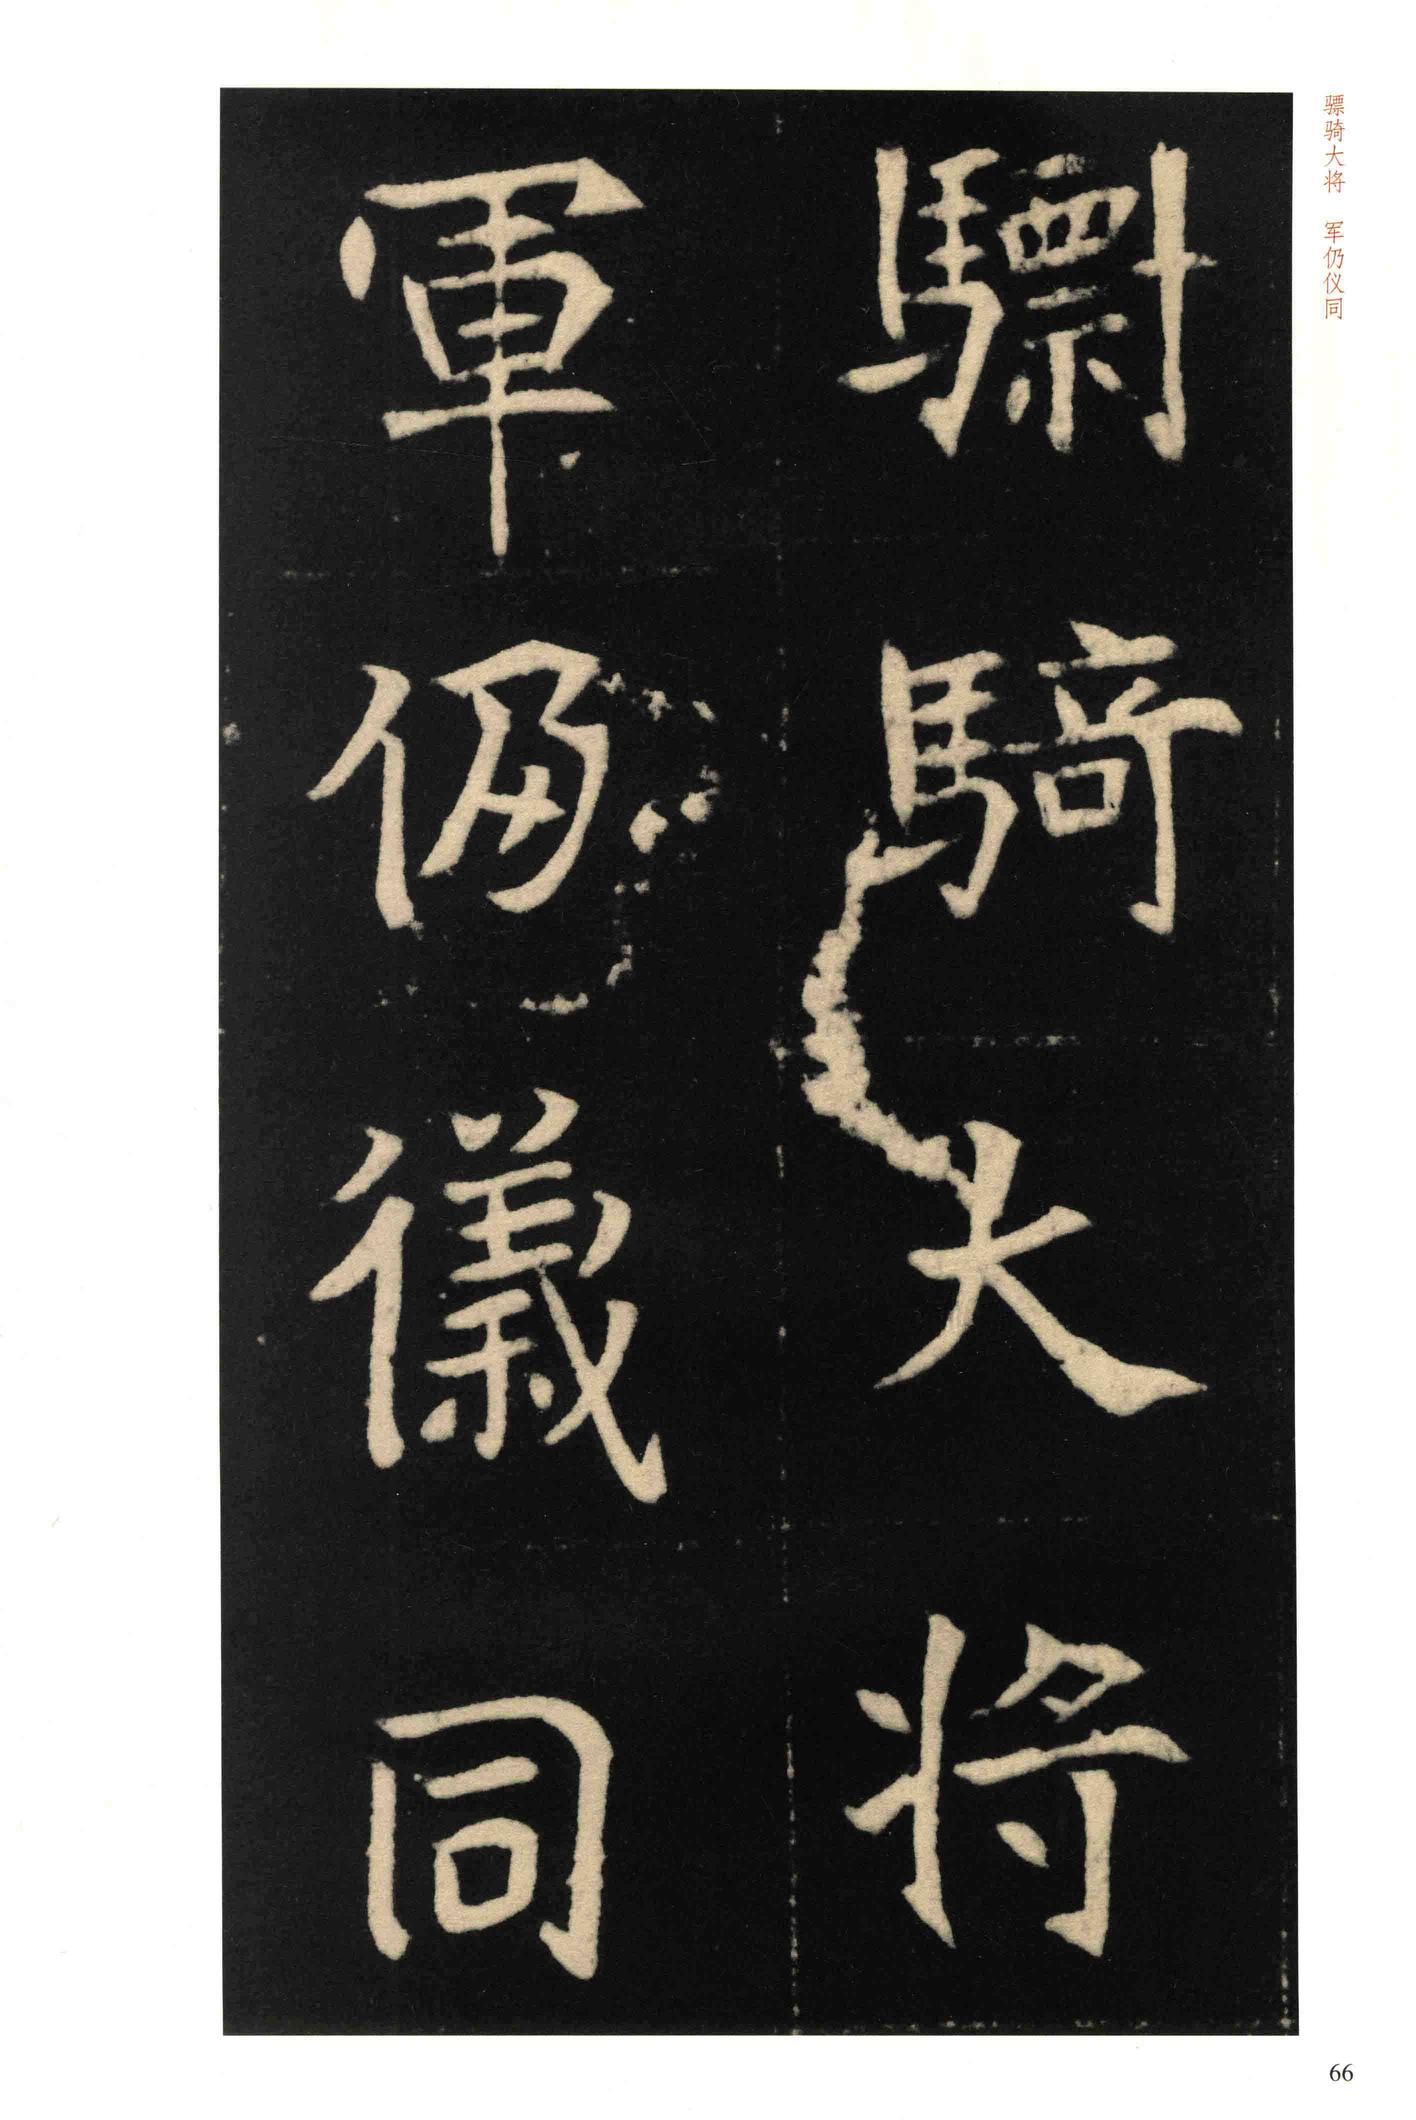 驃騎大将
軍仍儀同
骠骑大将 军仍仪同
66